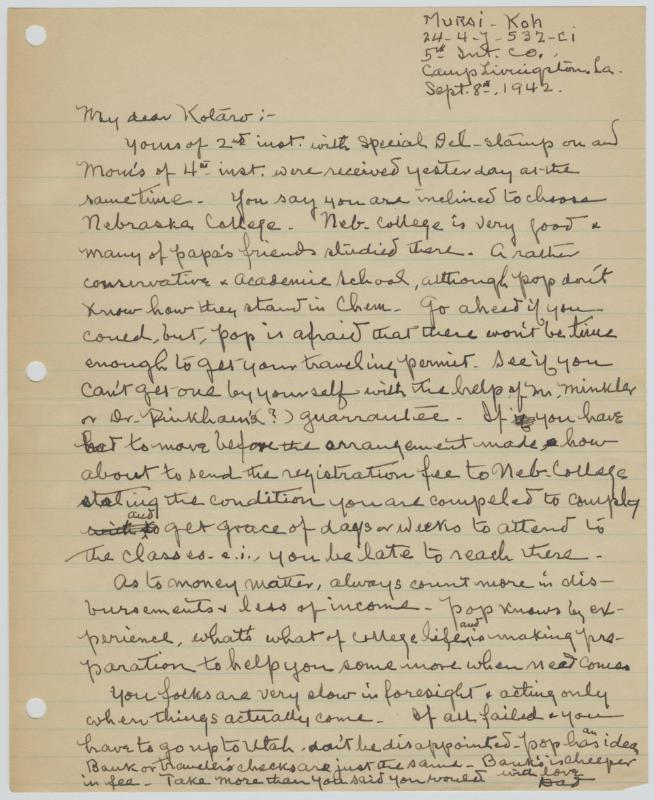 MURAI - Koh
24-4-J-532-CI
5th Int. Co.,
Camp Livingston, La.
Sept. 8th, 1942.
My dear Kotaro ;-
Yours of 2nd inst. with Special Del-stamp on and
Mom's of 4th inst. were received yesterday at the
same time - You say you are inclined to choose
Nebraska College - Neb-college is very good &
many of papa's friends studied there. A rather
conservative & academic school, although pop don't
know how they stand in Chem. Go ahead if you
coued, but, pop is afraid that there won't be time
enough to get your traveling permit. See if you
can't get one by yourself with the help of Mr. Minkler
or Dr. Pinkham's (?) guarrantee - If you have
to move before the arrangement made, how
about to send the registration fee to Neb-College
stating the condition you are compeled to comply
and get grace of days or weeks to attend to
the classes - e.i., you be late to reach there -
As to money matter, always count more in dis-
bursements & less of income - Pop knows by ex-
perience, what's what of college life, and is making pre-
paration to help you some more when need comes
You folks are very slow in foresight & acting only
when things actually come - If all failed & you
have to go up to Utah, don't be disappointed - Pop has an idea
Bank or traveler's checks are just the same - Bank's is cheeper
in fee - Take more than you said you would with love
Dad